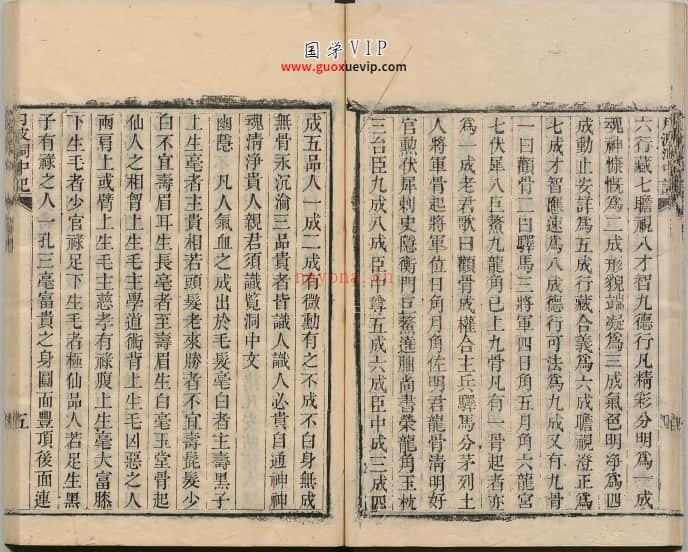 国学VIP
www.guoxuevip.com
六行藏七瞻視八才智九德行凡精彩分明為一成
魂神慷慨為二成形貌端凝為三成氣色明淨為四
成動止安詳為五成行藏合義為六成瞻視澄正為
七成才智應速為八成德行可法為九成又有九骨
一曰顴骨二曰驛馬三將軍四日角五月角六龍宮
七伏犀八巨鰲九龍角已上九骨凡有一骨起者亦
為一成老君歌曰顴骨成權合主兵驛馬分茅列土
人將軍骨起將軍位日角月角佐明君龍骨清明好
官勲伏犀剌史隱衡門巨鰲進陟尚書榮龍角玉枕
三台臣九成八成臣中尊五成六成臣中成三成四
成五品人一成二成有微勳有之不成不白身無成
無骨永沉淪三品貴者皆識人識人必貴自通神神
魂清淨貴人親君須識覽洞中文
幽隱
凡人氣血之成出於毛髮毫白者主壽黑子
上生毫者主貴相若頭髮老來勝者不宜壽髭髮少
白不宜壽眉耳生長毫者至壽眉生白毫玉堂骨起
仙人之相胷上生毛主學道術背上生毛凶惡之人
兩肩上或臂上生毛主慈孝有祿腹上生毫大富膝
下生毛者少官祿足下生毛者極仙品人若足生黑
子有祿之人一孔三毫富貴之身圓面豐頂後面連
月波洞中記
五
nayona.cn